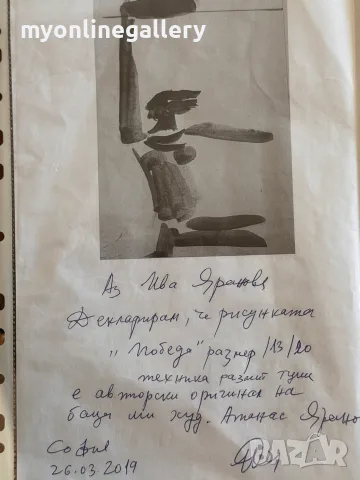 myonlinegallery
Аз Ива Яранова
Декларирам, че рисунката
"Победа" размер /13/20
техника размит туш
е авторски оригинал на
баща ми худ. Атанас Яранов
София
26.03.2019
bazar